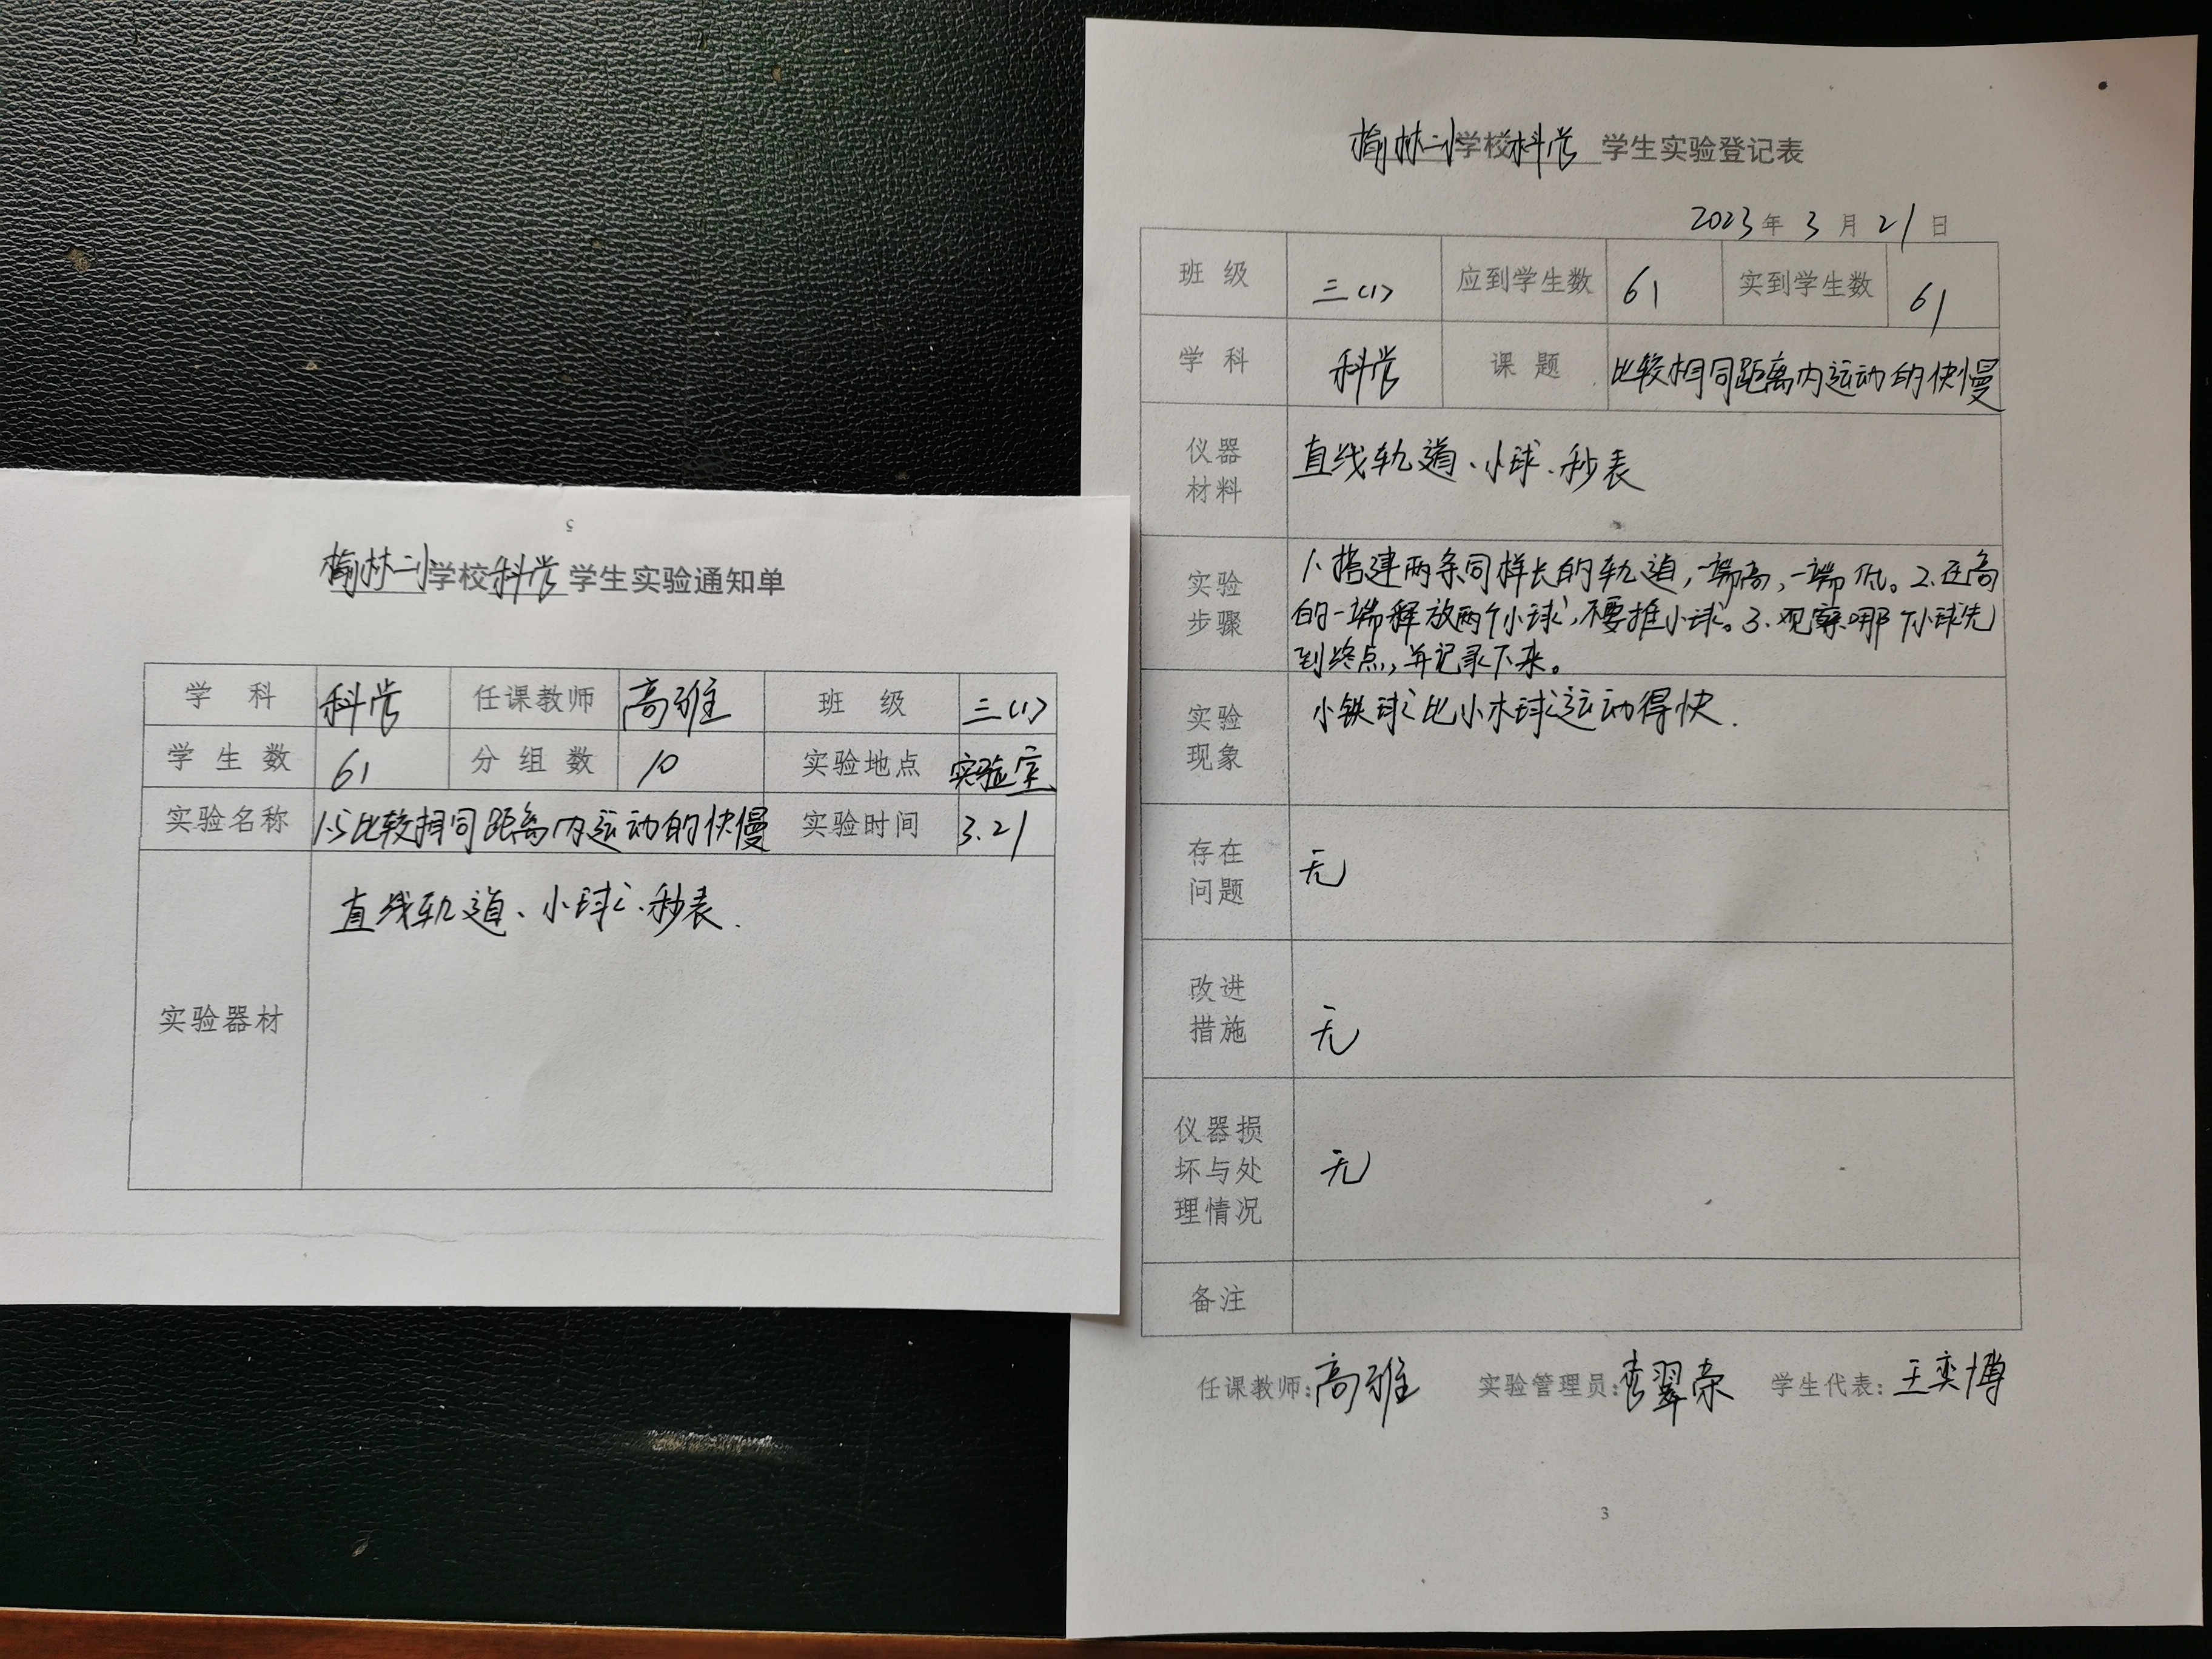 5
榆林二小学校科学学生实验通知单
学 科 科学 任课教师 高雅 班 级 三(1)
学 生 数 61 分 组 数 10 实验地点 实验室
实验名称 1.5比较相同距离内运动的快慢 实验时间 3.21
直线轨道、小球、秒表.
实验器材
榆林二小学校科学 学生实验登记表
2023年 3 月 21 日
班 级 三(1) 应到学生数 61 实到学生数 61
学 科 科学 课 题 比较相同距离内运动的快慢
仪器
材料
直线轨道、小球、秒表
实验
步骤
1、搭建两条同样长的轨道,一端高,一端低。2.在高
的一端释放两个小球,不要推小球。3.观察哪个小球先
到终点,并记录下来。
实验
现象
小铁球比小木球运动得快.
存在
问题
无
改进
措施
无
仪器损
坏与处
理情况
无
备注
任课教师:高雅 实验管理员:翠荣 学生代表:王奕博
3